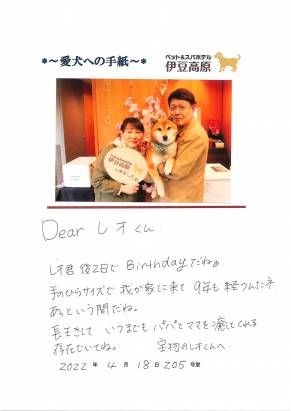 *～愛犬への手紙～*
ペット&スパホテル
伊豆高原
ペット&スパホテル
伊豆高原
に来ました!
Dear レオくん
レオ君 後2日で Birthdayだね
手のひらサイズで 我が家に来て 9年も経つんだネ
あっという間だね。
長生きして いつまでも パパとママを癒してくれる
存在でいてね。 宝物のレオくんへ
2022 年 4 月 18 日 205 号室